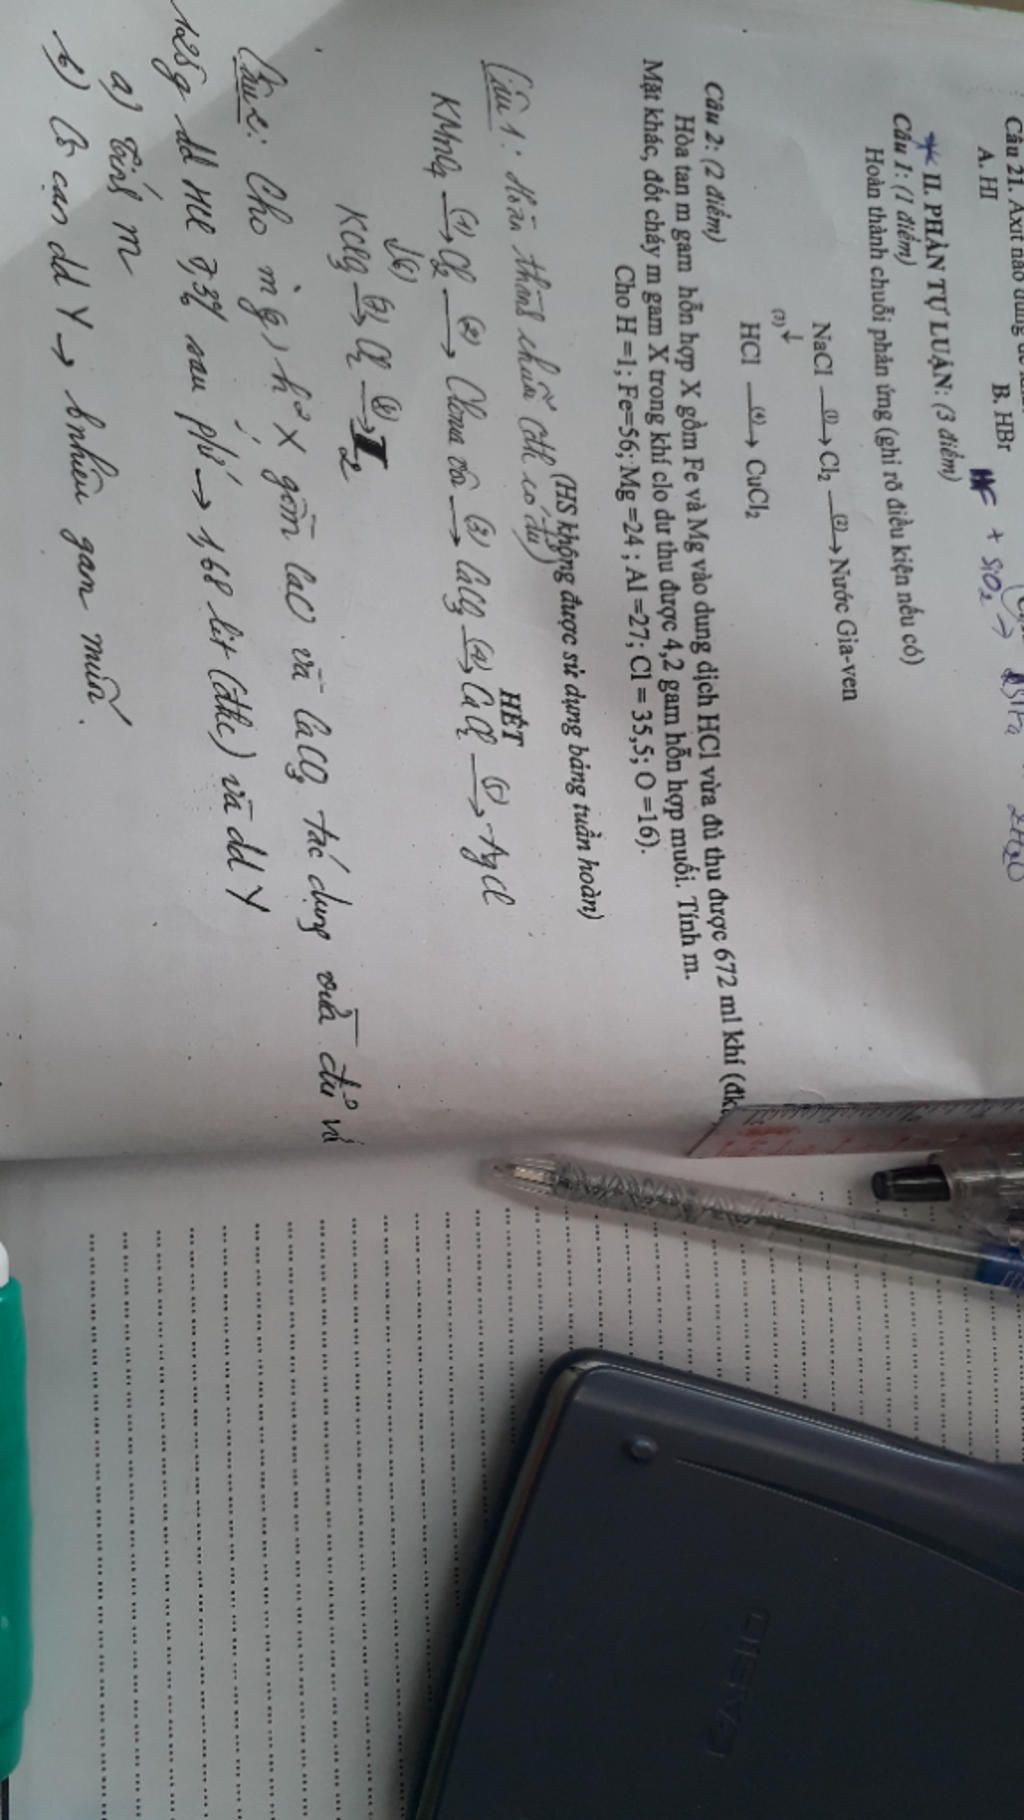 Câu 21. Axit nào dùng để
A. HI B. HBr
HF + SiO2 →
2H2O
II. PHẦN TỰ LUẬN: (3 điểm)
Câu 1: (1 điểm)
Hoàn thành chuỗi phản ứng (ghi rõ điều kiện nếu có)
NaCl (1)→ Cl2 (2)→ Nước Gia-ven
(3)↓
HCl (4)→ CuCl2
Câu 2: (2 điểm)
Hòa tan m gam hỗn hợp X gồm Fe và Mg vào dung dịch HCl vừa đủ thu được 672 ml khí (đk
Mặt khác, đốt cháy m gam X trong khí clo dư thu được 4,2 gam hỗn hợp muối. Tính m.
Cho H =1; Fe=56; Mg =24 ; Al =27; Cl = 35,5; O =16).
(HS không được sử dụng bảng tuần hoàn)
HẾT
Câu 1: Hoàn thành chuỗi (đk có đủ)
KMnO4 (1)→ Cl2 (2)→ Clorua vôi (3)→ CaCO3 (4)→ CaCl2 (5)→ AgCl
↓(6)
KClO3 (7)→ Cl2 (8)→ I2
Câu 2: Cho m (g) h² X gồm CaO và CaCO3 tác dụng vừa đủ với
125g dd HCl 7,3% sau pứ → 1,68 lít (đkc) và dd Y
a) Tính m
b) Cô cạn dd Y → b nhiêu gam muối.
CASIO